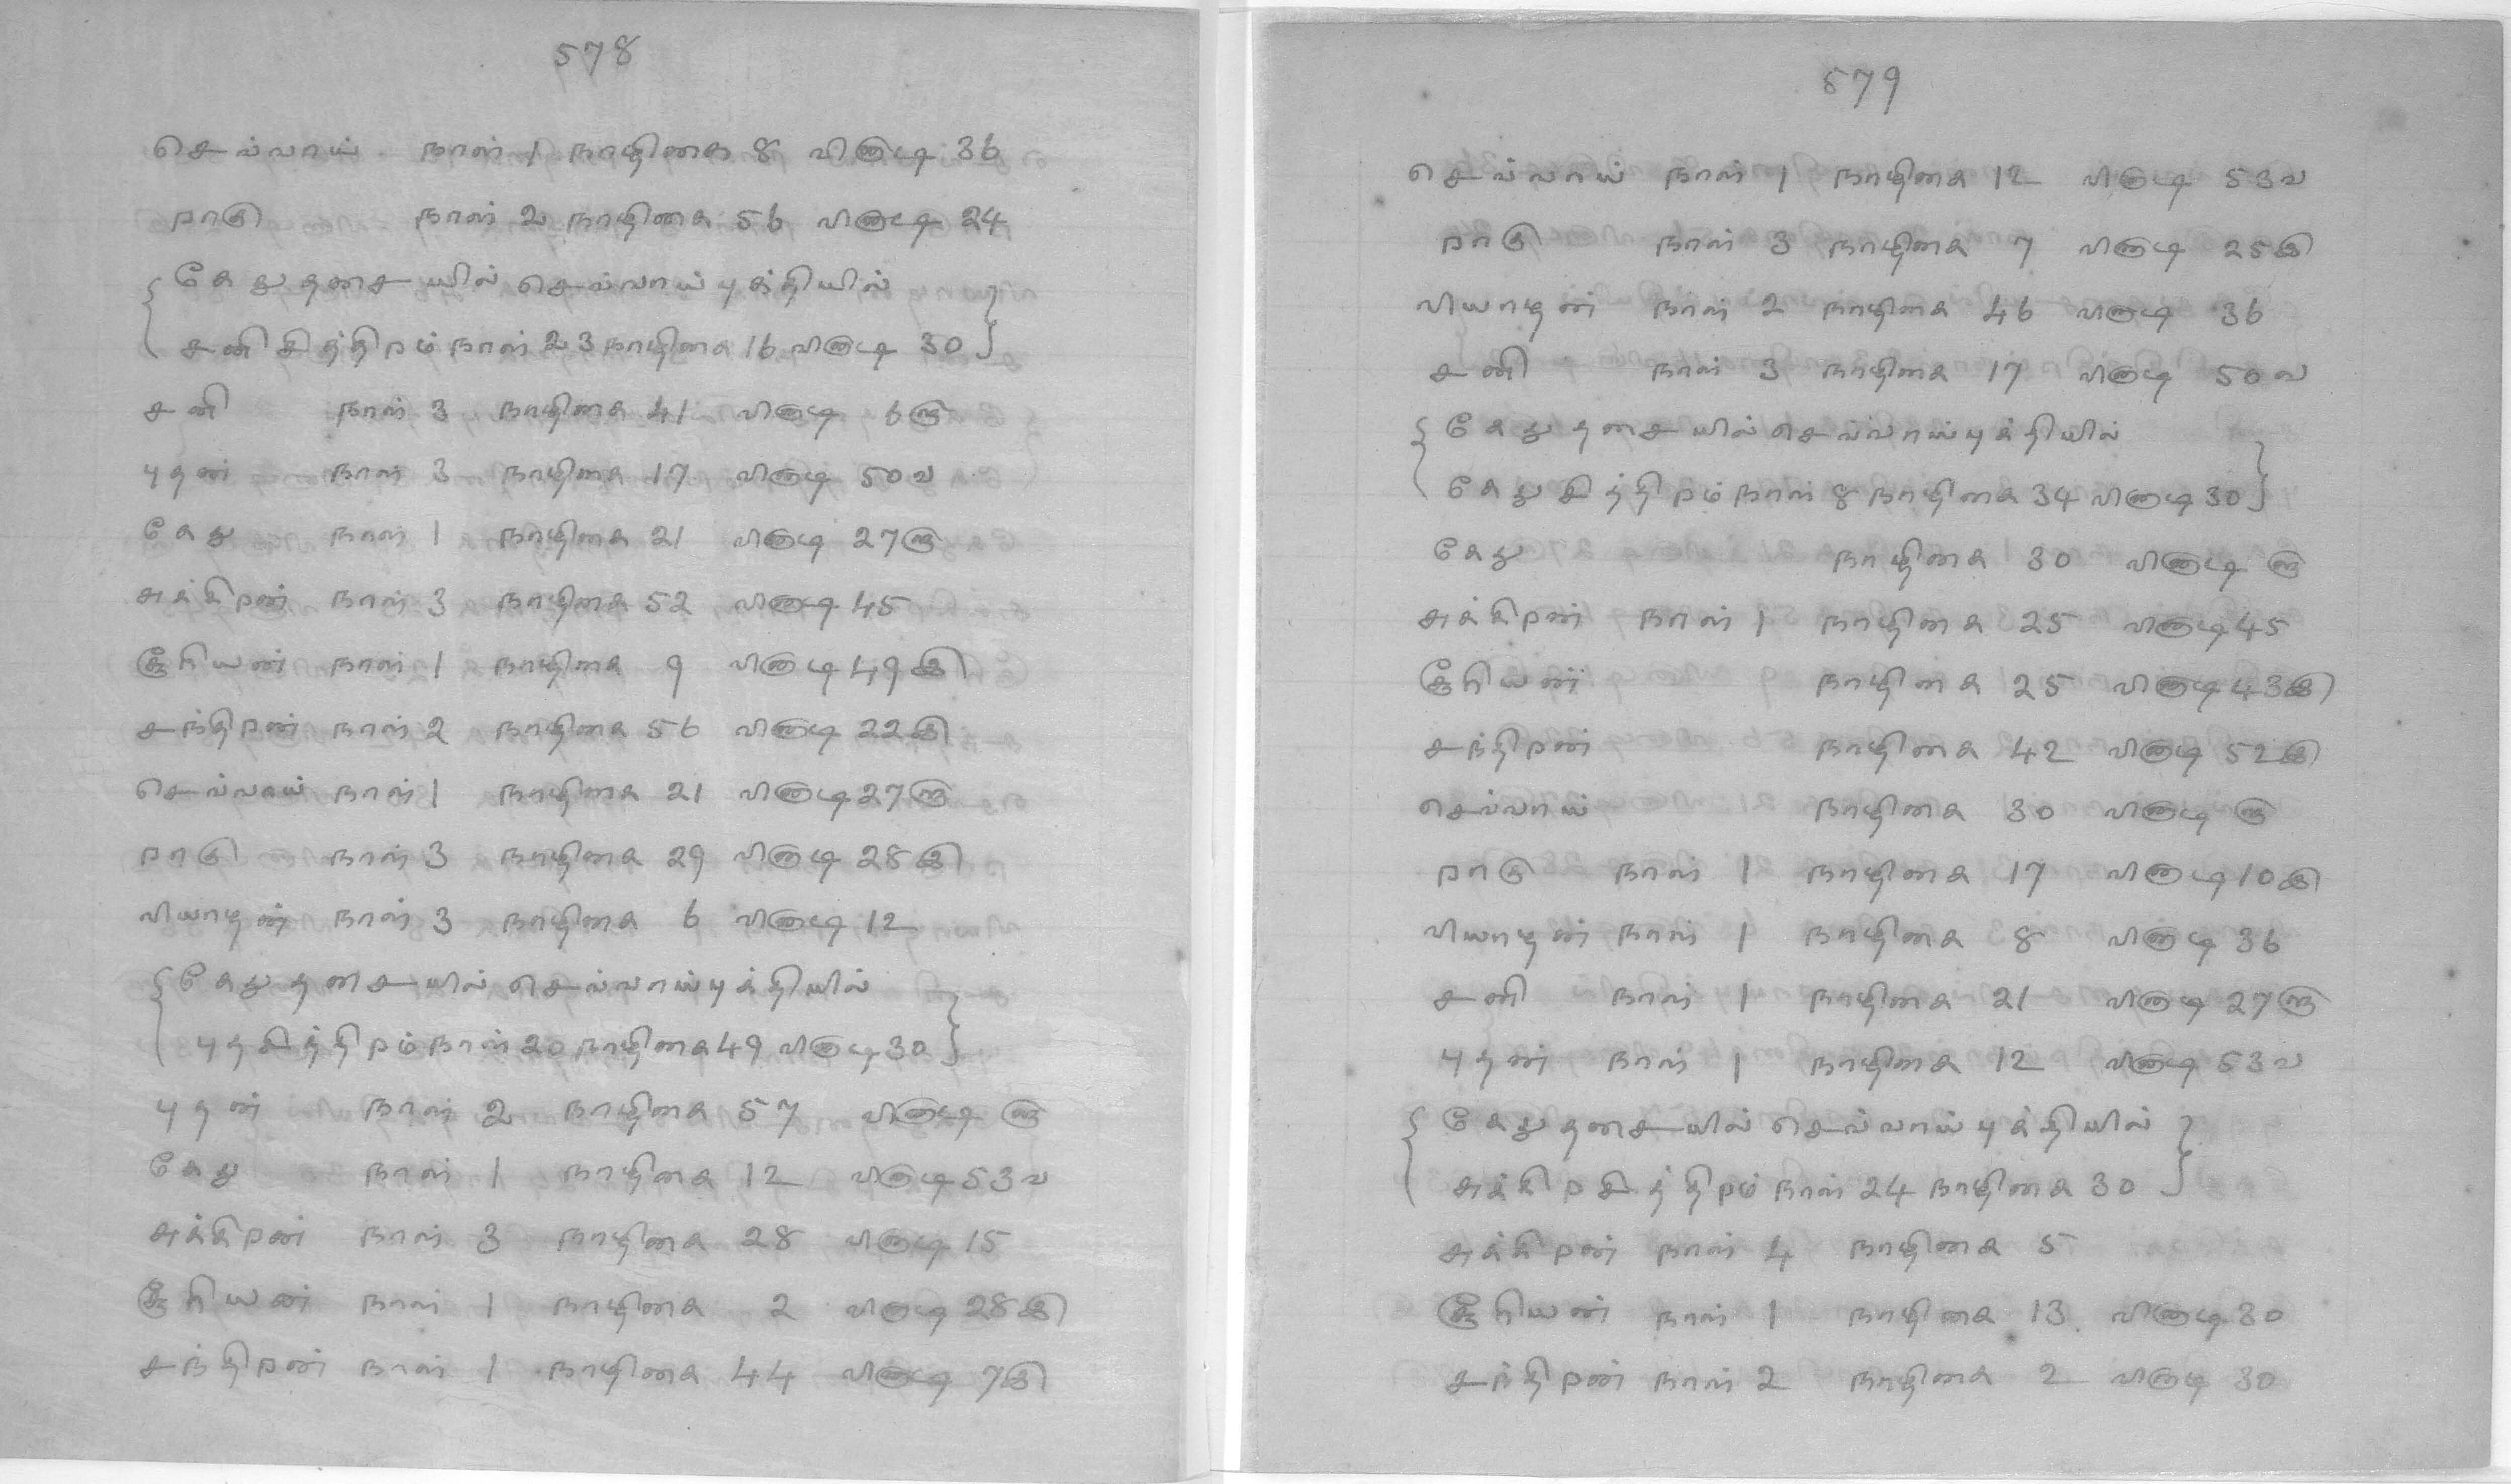 578
செவ்வாய் நாள் 1 நாழிகை 8 விநாடி 36
றாகு நாள் 2 நாழிகை 56 விநாடி 24
{ கேது தசையில் செவ்வாய் புக்தியில் }
{ சனி சித்திறம் நாள் 23 நாழிகை 16 விநாடி 30 }
சனி நாள் 3 நாழிகை 41 விநாடி 6௫
புதன் நாள் 3 நாழிகை 17 விநாடி 50வ
கேது நாள் 1 நாழிகை 21 விநாடி 27௫
சுக்கிறன் நாள் 3 நாழிகை 52 விநாடி 45
சூரியன் நாள் 1 நாழிகை 9 விநாடி 49இ
சந்திறன் நாள் 2 நாழிகை 56 விநாடி 22இ
செவ்வாய் நாள் 1 நாழிகை 21 விநாடி 27௫
றாகு நாள் 3 நாழிகை 29 விநாடி 28இ
வியாழன் நாள் 3 நாழிகை 6 விநாடி 12
{ கேது தசையில் செவ்வாய் புக்தியில் }
{ புத சித்திறம் நாள் 20 நாழிகை 49 விநாடி 30 }
புதன் நாள் 2 நாழிகை 57 விநாடி ௫
கேது நாள் 1 நாழிகை 12 விநாடி 53வ
சுக்கிறன் நாள் 3 நாழிகை 28 விநாடி 15
சூரியன் நாள் 1 நாழிகை 2 விநாடி 28இ
சந்திறன் நாள் 1 நாழிகை 44 விநாடி 7இ
579
செவ்வாய் நாள் 1 நாழிகை 12 விநாடி 53வ
றாகு நாள் 3 நாழிகை 7 விநாடி 25இ
வியாழன் நாள் 2 நாழிகை 46 விநாடி 36
சனி நாள் 3 நாழிகை 17 விநாடி 50வ
{ கேது தசையில் செவ்வாய் புக்தியில் }
{ கேது சித்திறம் நாள் 8 நாழிகை 34 விநாடி 30 }
கேது நாழிகை 30 விநாடி ௫
சுக்கிறன் நாள் 1 நாழிகை 25 விநாடி 45
சூரியன் நாழிகை 25 விநாடி 43இ
சந்திறன் நாழிகை 42 விநாடி 52இ
செவ்வாய் நாழிகை 30 விநாடி ௫
றாகு நாள் 1 நாழிகை 17 விநாடி 10இ
வியாழன் நாள் 1 நாழிகை 8 விநாடி 36
சனி நாள் 1 நாழிகை 21 விநாடி 27௫
புதன் நாள் 1 நாழிகை 12 விநாடி 53வ
{ கேது தசையில் செவ்வாய் புக்தியில் }
{ சுக்கிற சித்திறம் நாள் 24 நாழிகை 30 }
சுக்கிறன் நாள் 4 நாழிகை 5
சூரியன் நாள் 1 நாழிகை 13 விநாடி 30
சந்திறன் நாள் 2 நாழிகை 2 விநாடி 30